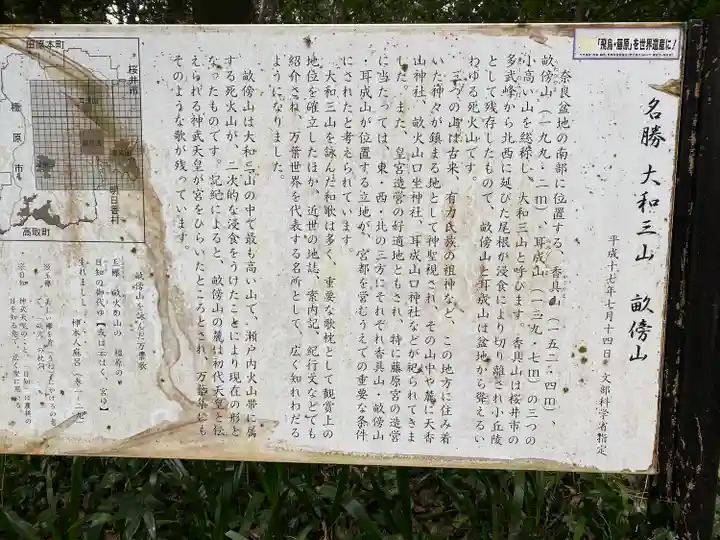 「飛鳥・藤原」を世界遺産に!
名勝 大和三山 畝傍山
平成十七年七月十四日 文部科学省指定
奈良盆地の南部に位置する、香具山(一五二・四m)、
畝傍山(一九九・二m)、耳成山(一三九・七m)の三つの
小高い山を総称し、大和三山と呼びます。香具山は桜井市の
多武峰から北西に延びた尾根が浸食により切り離され小丘陵
として残存したもので、畝傍山と耳成山は盆地から聳えるい
わゆる死火山です。
三つの山は古来、有力氏族の祖神など、この地方に住み着
いた神々が鎮まる地として神聖視され、その山中や麓に天香
山神社、畝火山口坐神社、耳成山口神社などが祀られてきま
した。また、皇宮造営の好適地ともされ、特に藤原宮の造営
に当たっては、東・西・北の三方にそれぞれ香具山・畝傍山
・耳成山が位置する立地が、宮都を営むうえでの重要な条件
にされたと考えられています。
大和三山を詠んだ和歌は多く、重要な歌枕として観賞上の
地位を確立したほか、近世の地誌、案内記、紀行文などでも
紹介され、万葉世界を代表する名所として、広く知れわたる
ようになりました。
畝傍山は大和三山の中で最も高い山で、瀬戸内火山帯に属
する死火山が、二次的な浸食をうけたことにより現在の形と
なったものです。記紀によると、畝傍山の麓は初代天皇と伝
えられる神武天皇が宮をひらいたところとされ、万葉集にも
そのような歌が残っています。
畝傍山を詠んだ万葉歌
玉襷 畝火の山の 橿原の
日知の御代ゆ【或は云はく、宮ゆ】
生れましし…
柿本人麻呂(巻一・二九)
田原本町
桜井市
橿原市
明日香村
高取町